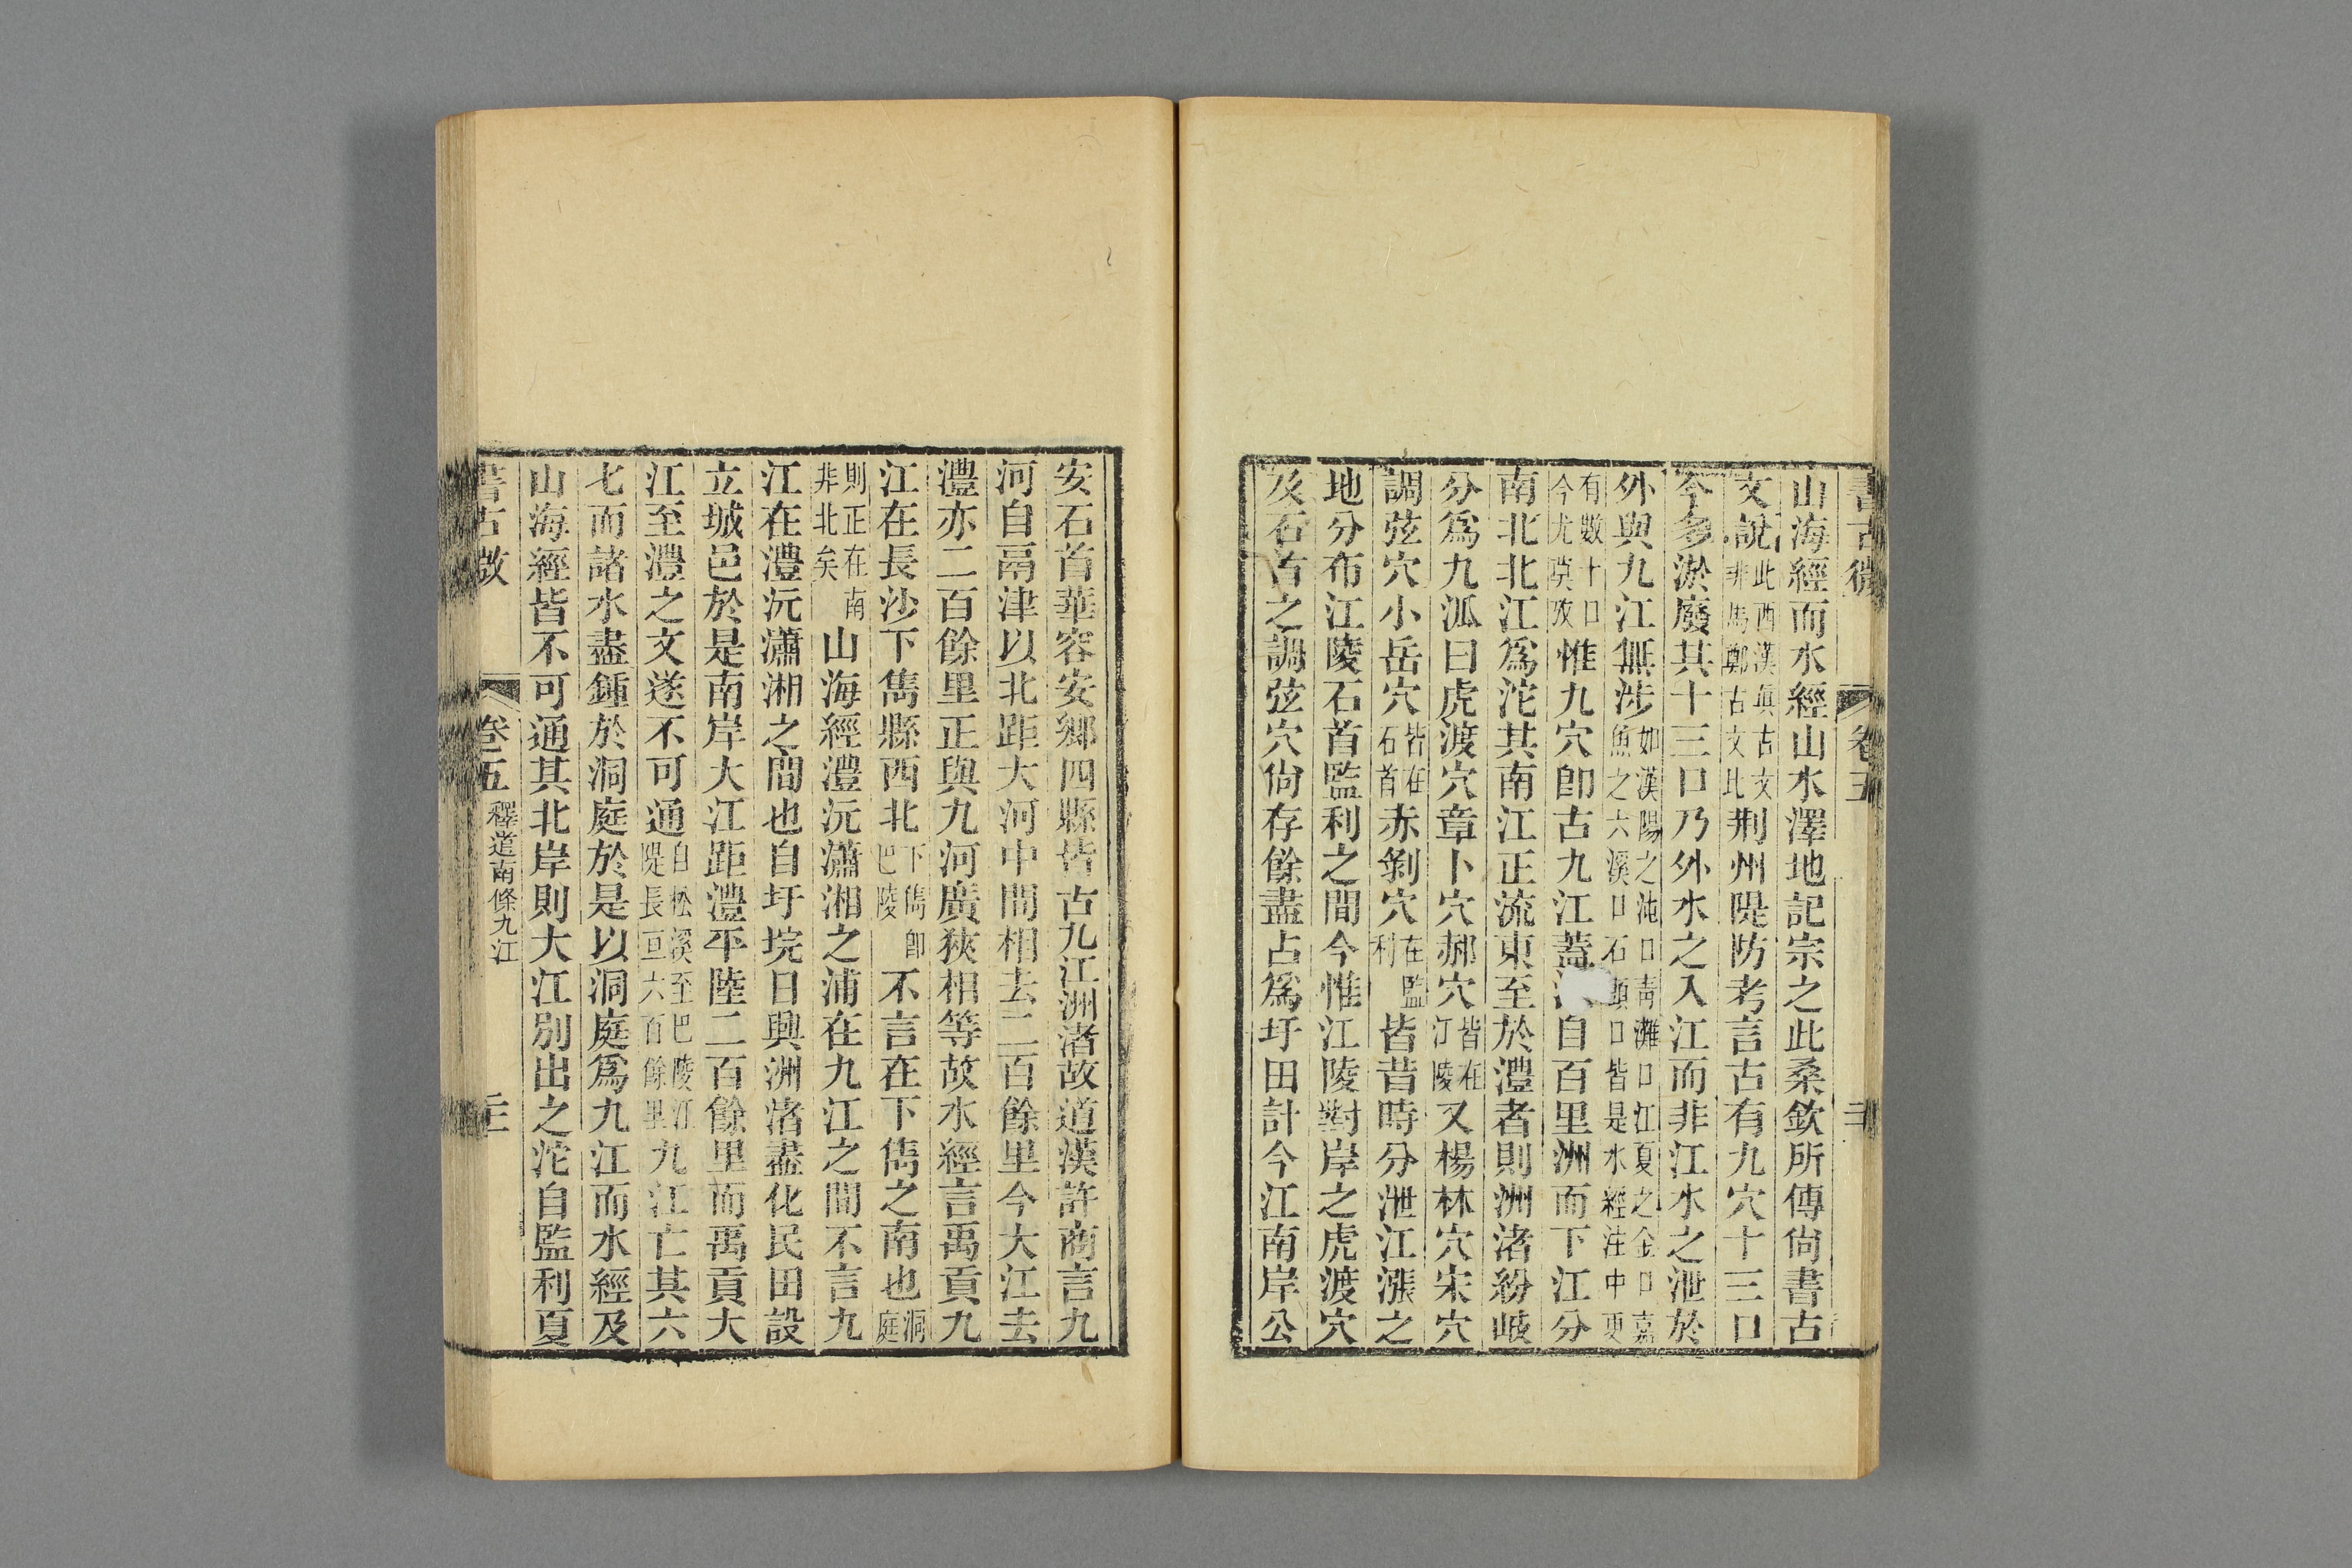 書古微 卷五
山海經而水經山水澤地記宗之此桑欽所傳尙書古
文說此西漢眞古文非馬鄭古文比荆州隄防考言古有九穴十三口
今多淤廢其十三口乃外水之入江而非江水之泄於
外與九江無涉如漢陽之沌口靑灘口江夏之金口嘉魚之六溪口石頭口皆是水經注中更
有數十口今尤莫攷惟九穴卽古九江蓋自百里洲而下江分
南北北江爲沱其南江正流東至於澧者則洲渚紛岐
分爲九泒曰虎渡穴章卜穴郝穴皆在江陵又楊林穴宋穴
調弦穴小岳穴皆在石首赤剝穴在監利皆昔時分泄江漲之
地分布江陵石首監利之間今惟江陵對岸之虎渡穴
及石首之調弦穴尙存餘盡占爲圩田計今江南岸公
安石首華容安鄉四縣皆古九江洲渚故道漢許商言九
河自鬲津以北距大河中間相去二百餘里今大江去
澧亦二百餘里正與九河廣狹相等故水經言禹貢九
江在長沙下雋縣西北下雋卽巴陵不言在下雋之南也洞庭
則正在南非北矣山海經澧沅瀟湘之浦在九江之間不言九
江在澧沅瀟湘之間也自圩垸日興洲渚盡化民田設
立城邑於是南岸大江距澧平陸二百餘里而禹貢大
江至澧之文遂不可通自松溪至巴陵江隄長亘六百餘里九江亡其六
七而諸水盡鍾於洞庭於是以洞庭爲九江而水經及
山海經皆不可通其北岸則大江別出之沱自監利夏
書古微 卷五 釋道南條九江